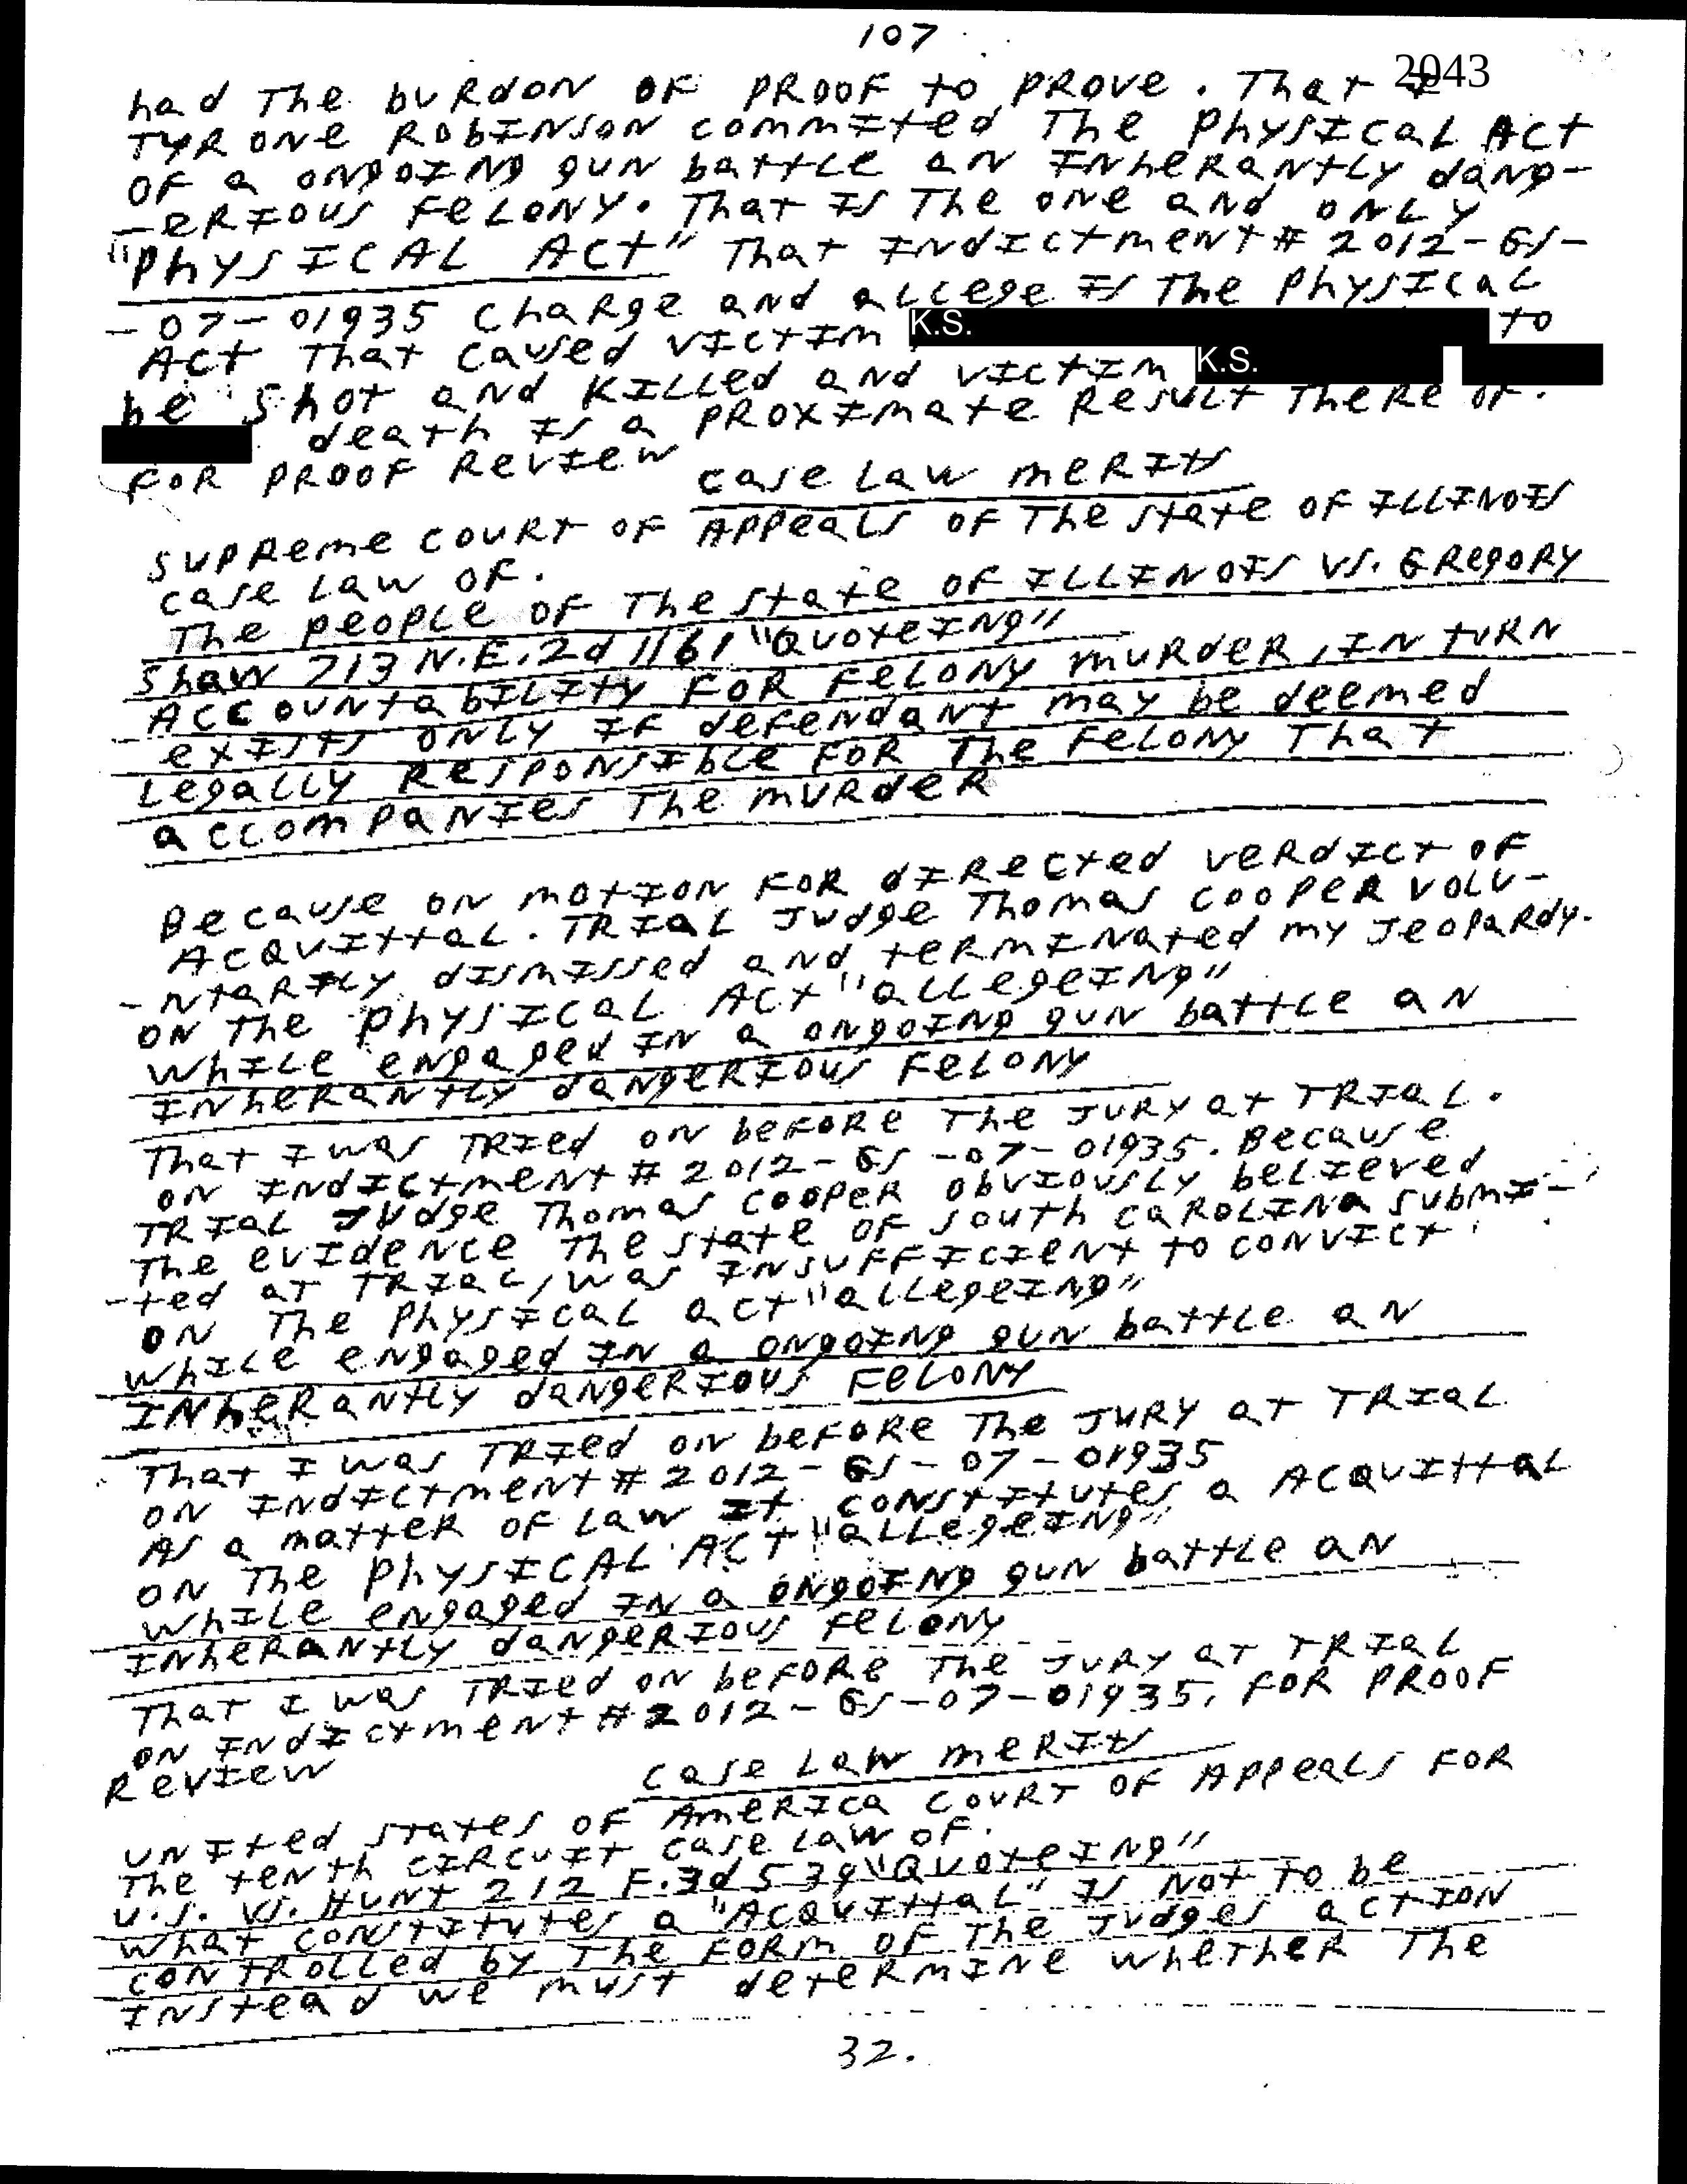 107
2043
had The buRdon OF PROOF to PROve. That I
TYRone RobINSon commIted The PhysIcal Act
OF a ongoINg gun battle an INheRantly dang-
-eRIous FeLony. That Is The one and only
"PhysICAL ACt" That INdIctment # 2012-GS-
-07-01935 ChaRge and allege Is The PhysIcal
Act That caused vIctIm K.S. to
be shot and KILLed and vIctIm K.S.
death Is a PRoxImate ResuLt TheRe oF.
FoR PROOF RevIew
case Law meRIts
supReme couRt oF Appeals oF The state oF ILLINoIs
case Law oF.
The people oF The state oF ILLINoIs vs. GRegoRy
Shaw 713 N.E.2d 1161 "QuoteINg"
AccountabILIty FoR FeLony muRdeR, IN tuRN
exIsts only IF defendant may be deemed
Legally ResponsIble FoR The FeLony That
accompanIes The muRdeR
Because on motIon FoR dIRected veRdIct oF
AcquIttal. TRIal Judge Thomas CoopeR volu-
-ntaRILy dIsmIssed and teRmINated my JeopaRdy.
on The PhysIcal Act "allegeINg"
whILe engaged IN a ongoINg gun battle an
INheRantly dangeRIous FeLony
That I was TRIed on befoRe The JuRy at TRIaL.
on INdIctment # 2012-GS-07-01935. Because
TRIaL Judge Thomas CoopeR obvIously belIeved
The evIdence The state oF South CaRoLINa submI-
-ted at TRIaL, was INsuFFIcIent to convIct
on The PhysIcal act "allegeINg"
whILe engaged IN a ongoINg gun battle an
INheRantly dangeRIous FeLony
That I was TRIed on befoRe The JuRy at TRIaL
on INdIctment # 2012-GS-07-01935
As a matteR oF Law It constItutes a AcquIttaL
on The PhysICAL ACT "allegeINg"
whILe engaged IN a ongoINg gun battle an
INheRantly dangeRIous FeLony
That I was TRIed on befoRe The JuRy at TRIaL
on INdIctment # 2012-GS-07-01935. FoR PROOF
RevIew
case Law meRIts
unIted states oF AmeRIca couRt oF Appeals FoR
The tenth cIRcuIt case Law oF.
u.s. vs. Hunt 212 F.3d 539 "QuoteINg"
what constItutes a "AcquIttal" Is not to be
contRolled by The FoRm oF The Judges actIon
INstead we must deteRmINe whetheR The
32.